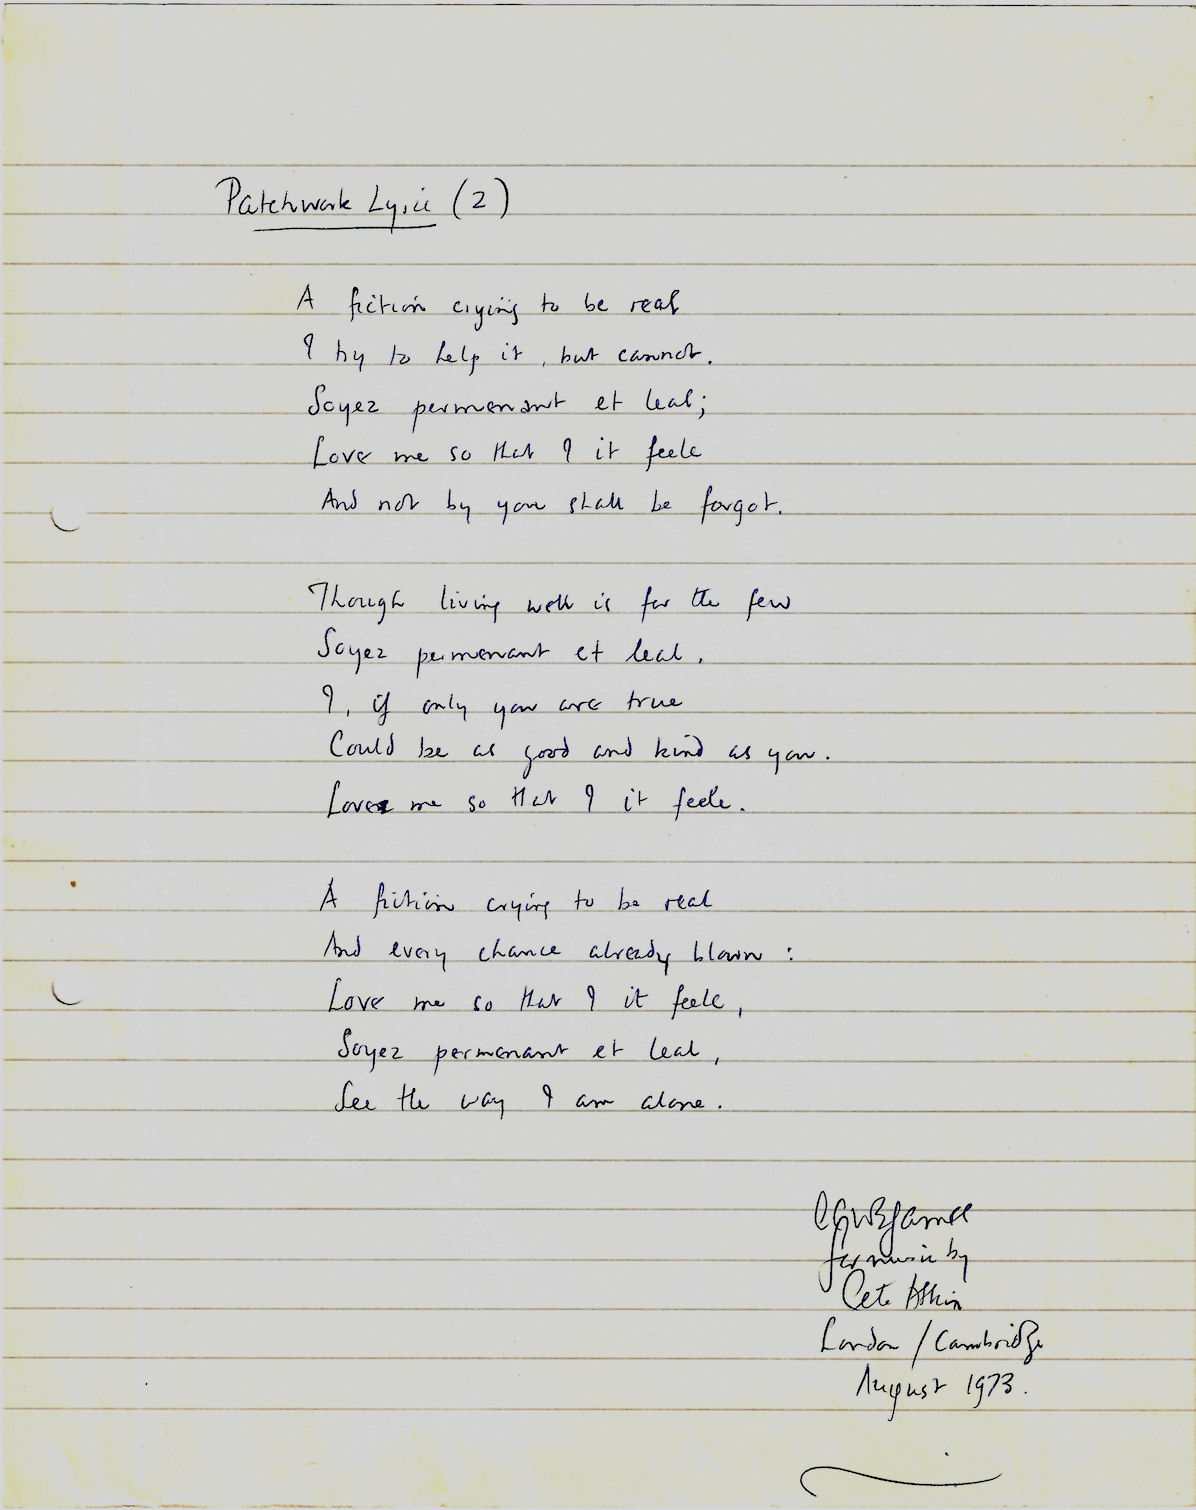 Patchwork Lyric (2)
A fiction crying to be real
I try to help it, but cannot.
Soyez permenant et leal;
Love me so that I it feele
And not by you shall be forgot.
Though living well is for the few
Soyez permenant et leal.
I, if only you are true
Could be as good and kind as you.
Love me so that I it feele.
A fiction crying to be real
And every chance already blown:
Love me so that I it feele,
Soyez permenant et leal,
See the way I am alone.
for music by
Pete Atkin
London / Cambridge
August 1973.